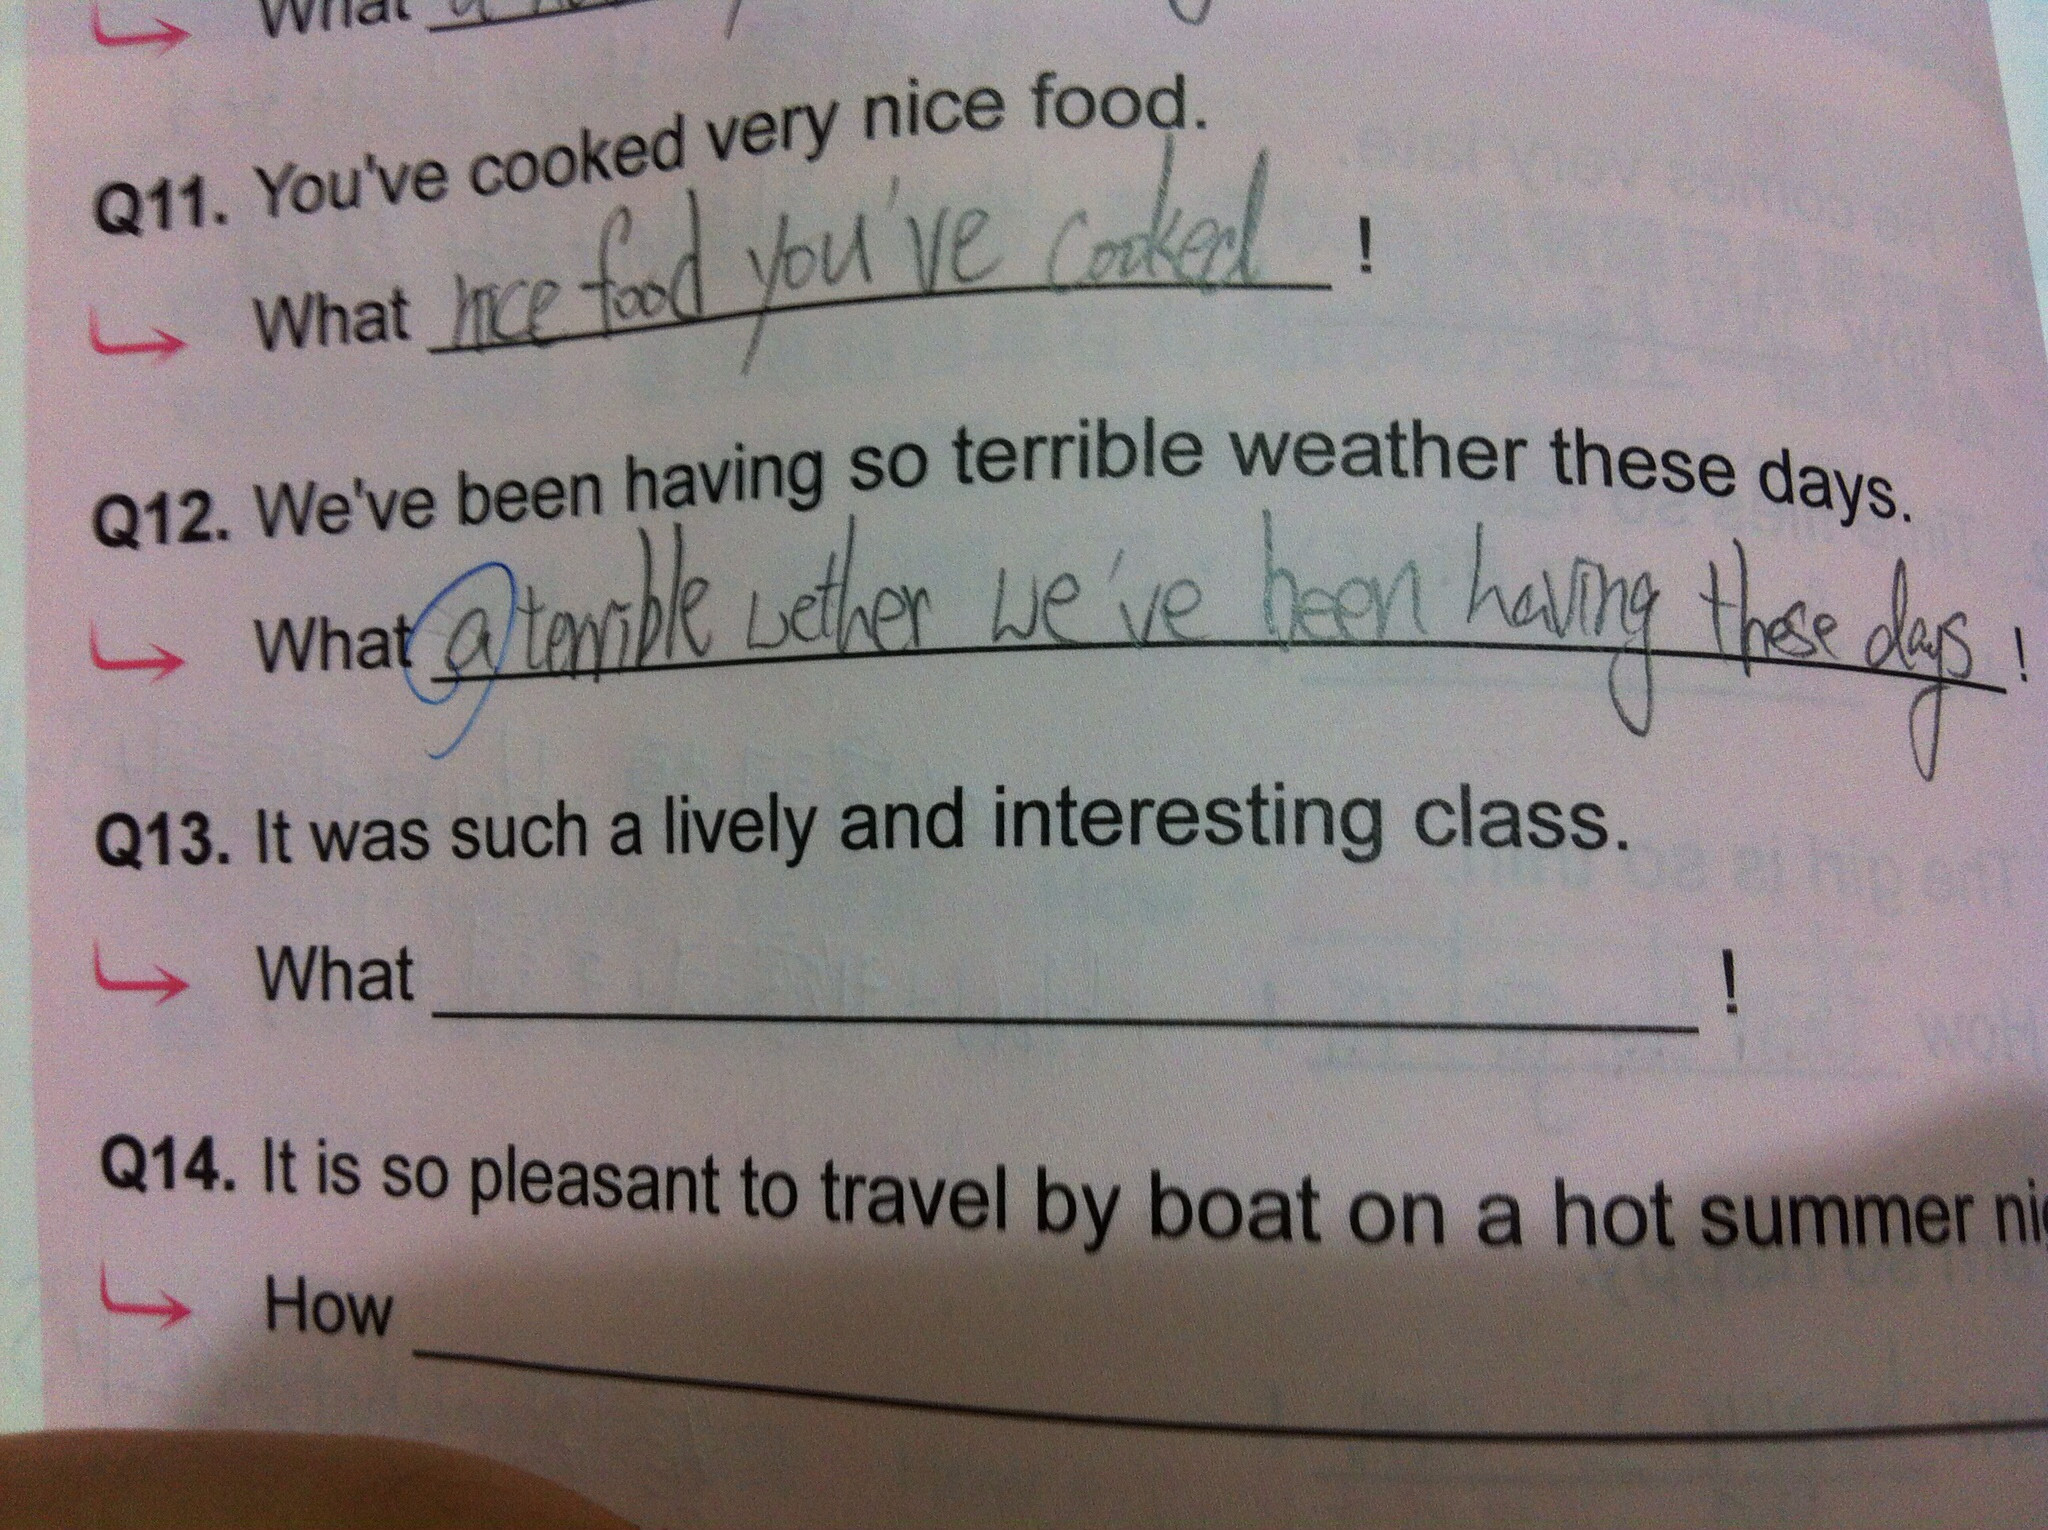 What a
Q11. You've cooked very nice food.
What nice food you've cooked !
Q12. We've been having so terrible weather these days.
What a terrible wether we've been having these days !
Q13. It was such a lively and interesting class.
What !
Q14. It is so pleasant to travel by boat on a hot summer nig
How